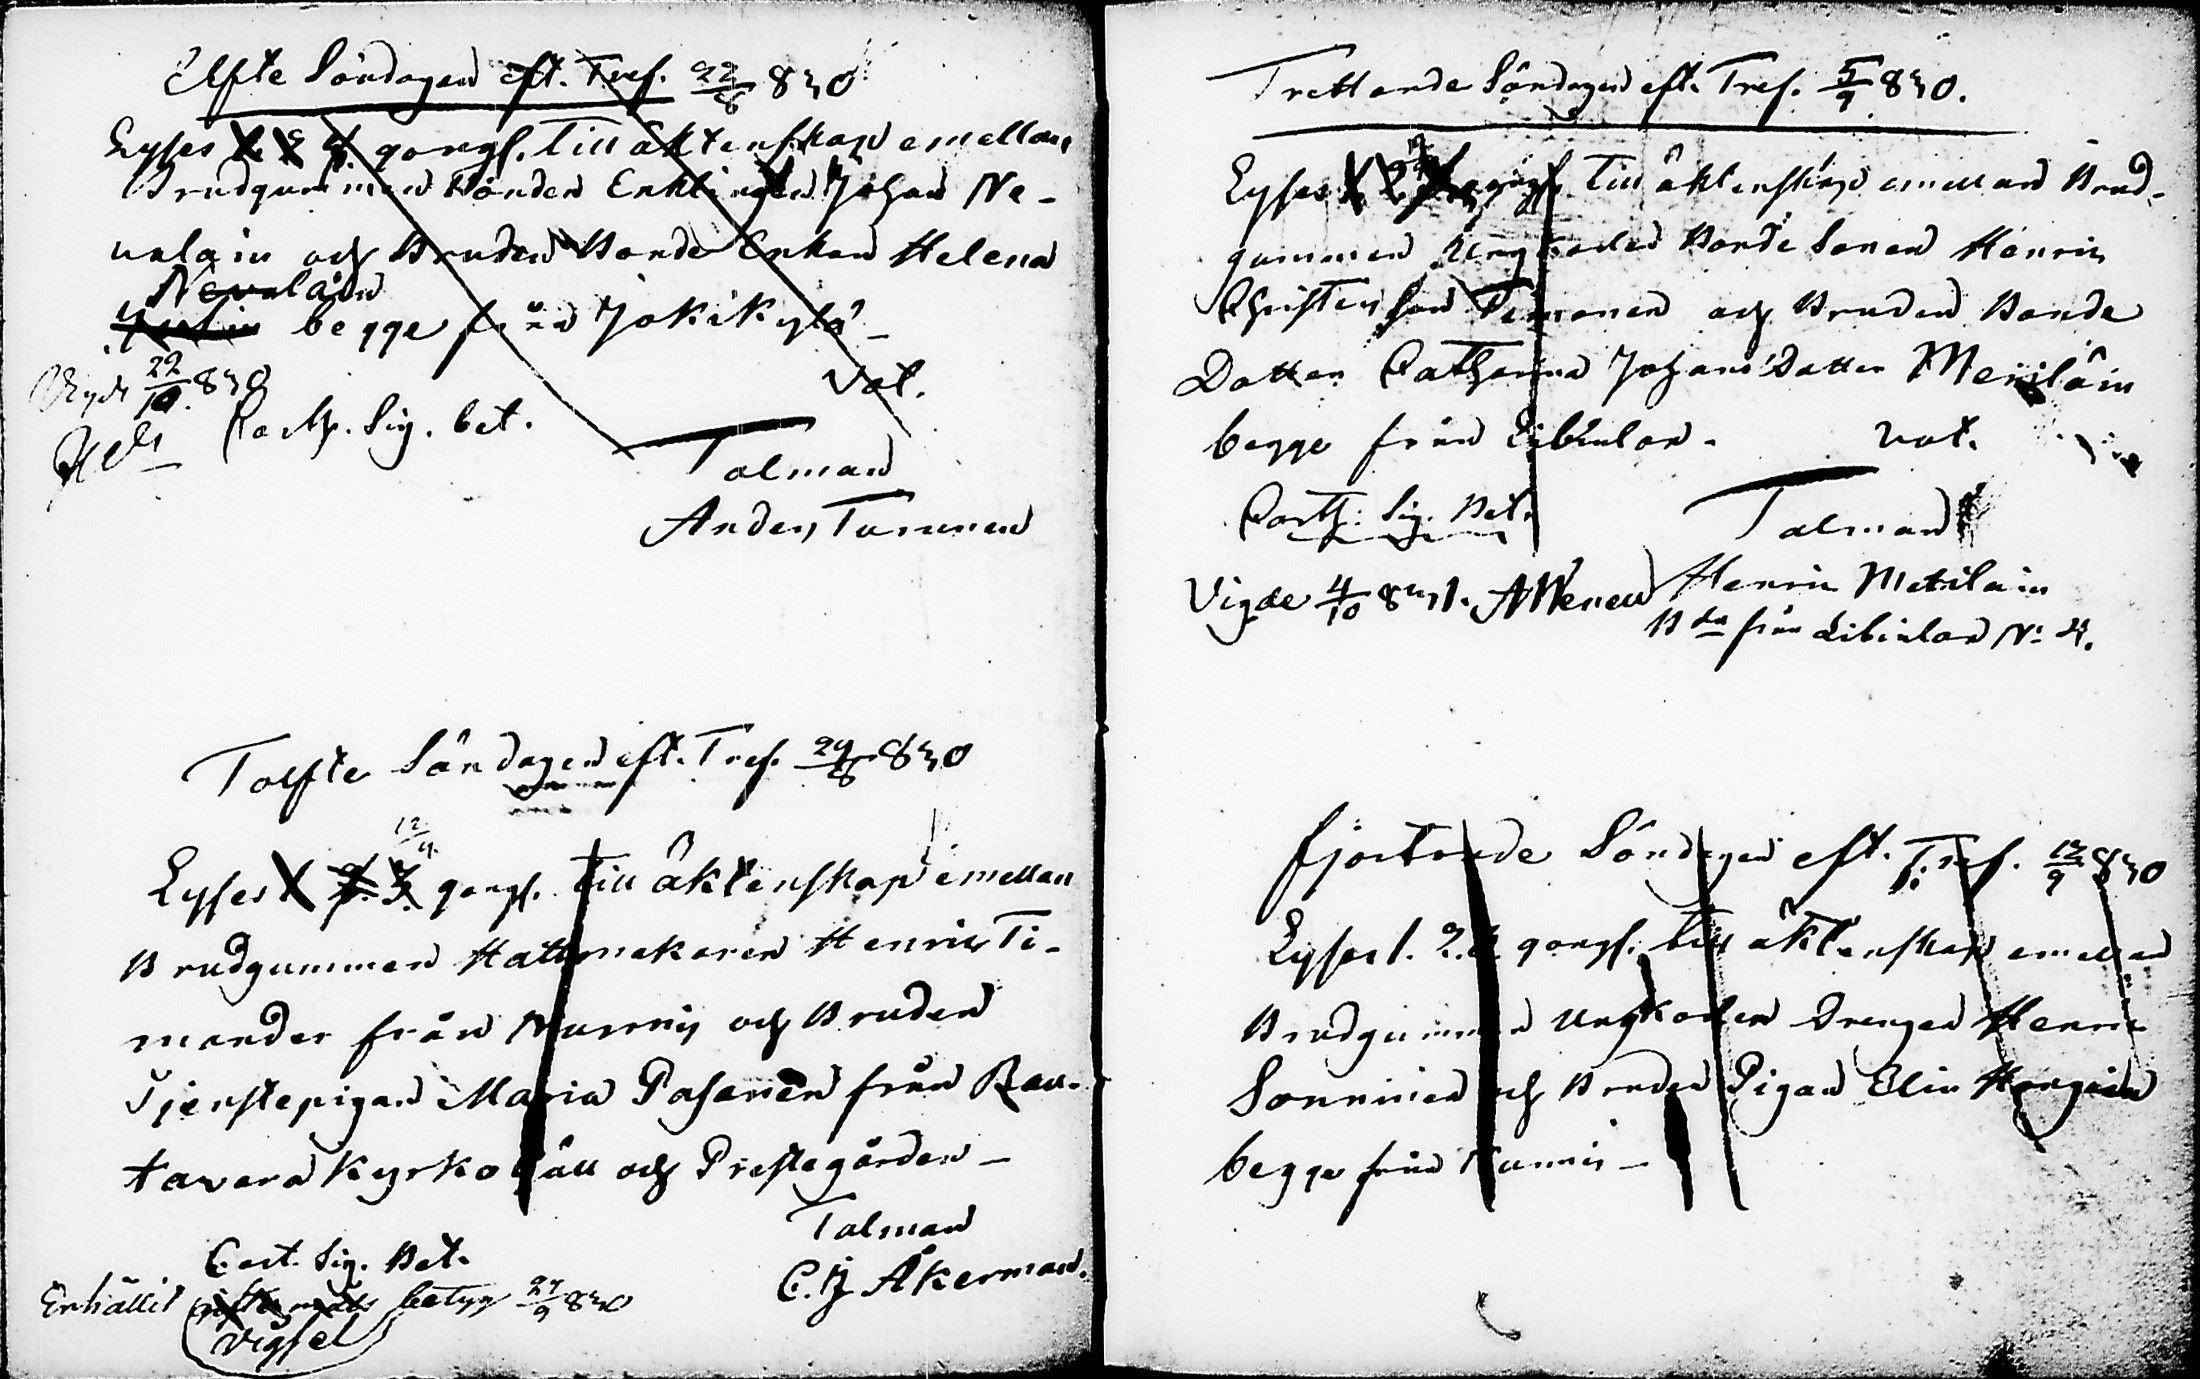 Elfte Söndagen eft. Tref. 22/8 840
Lyses 1. 2. 3. gongs. till äktenskap emellan
Brudgummen Bonden Enklingen Johan Ne-
valain och Bruden Bonde Enkan Helena
Nevalain
begge från Jokikylä -
Vigde 22/10. 840 Vat.
Cartp. Sig. bet.
Talman
Anders Turunen
Tolfte Söndagen eft. Tref. 29/8 840
12/9
Lyses 1 2. 3. gongs. till äktenskap emellan
Brudgummen Hattmakaren Henric Ti-
mander från Nurmis och Bruden
Tjenstepigan Maria Pasanen från Rau-
tavara Kyrkogåll och Prestegården -
Talman
Cart. Sig. Bet.
C. J Åkerman.
Erhållit betyg 27/9 840
vigsel
Trettonde Söndagen eft. Tref. 5/9 840.
Lyses 1 2. 3. gongs. till äktenskap emellan Brud-
gummen Ungkarlen Bonde Sonen Henric
Christersson Timonen och Bruden Bonde
Dotter Catharina Johans Dotter Meriläin
begge från Libinlax - Vat.
Cartp: Sig. Bet.
Talman
Vigde 4/10 841. Henric Metiläin
Bdn från Libinlax No 4.
fjortonde Söndagen eft. Tref. 12/9 840
Lyses 1. 2. 3. gongs. till äktenskap emellan
Brudgummen Ungkarlen Drengen Henric
Sonninen och Bruden Pigan Elin
begge från Nurmis -